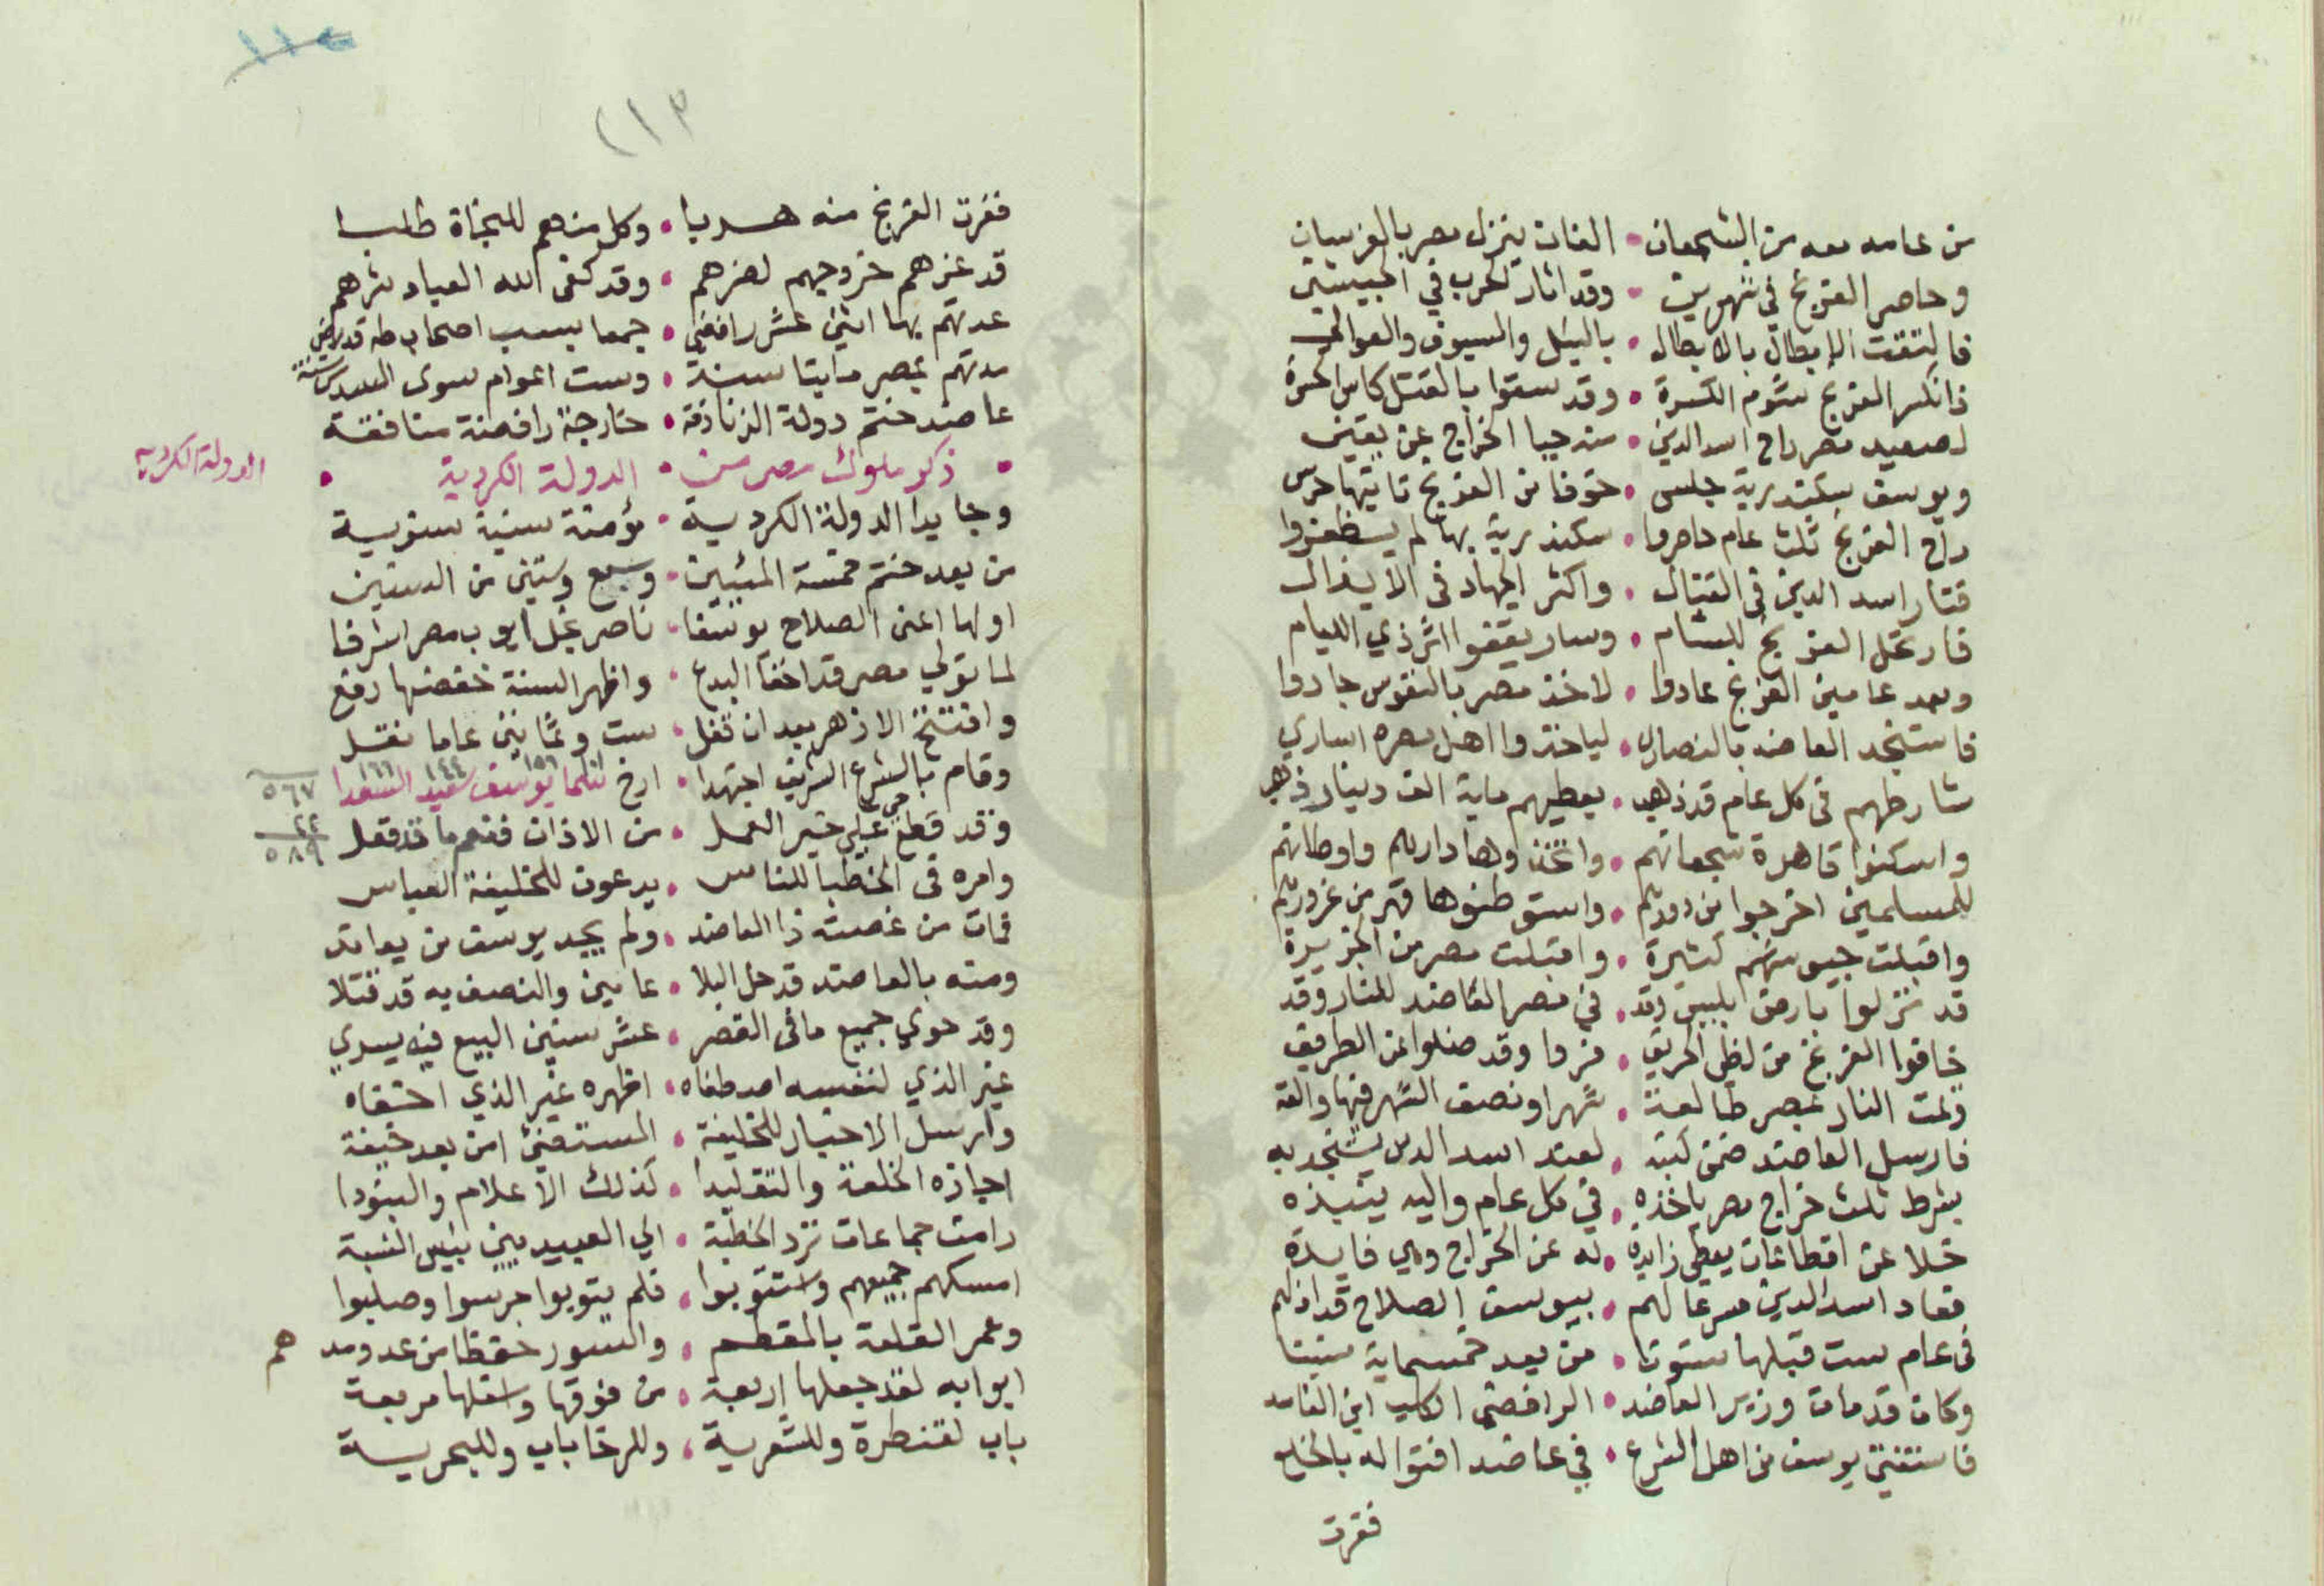 من عامه معه من الشجعان • الفان ينزل مصر بالفرسان
وحاصر الفرنج في شهرين • وقد اثار الحرب في الجيشين
فالتقت الابطال بالابطال • بالنبل والسيوف والعوالي
فانكسر الفرنج شوم الكسرة • وقد سقوا بالقتل كاس الحسرة
لصعيد مصر راح اسد الدين • منه جبا الخراج عن يقين
ويوسف بسكندرية جلس • خوفا من الفرنج تاتيها حرس
راح الفرنج ثلث عام حاصروا • سكندرية بها لم يظفروا
فثار اسد الدين في القتال • واكثر الجهاد في الانفال
فارتحل الفرنج للشام • وسار يقفوا اثر ذي اللئام
وبعد عامين الفرنج عادوا • لاخذ مصر بالنفوس جادوا
فاستنجد العاضد بالنصاري • لياخذوا اهل مصره اساري
شارطهم في كل عام قد ذهب • يعطيهم ماية الف دينار ذهب
واسكنوا قاهرة شجعانهم • واتخذوها دارهم واوطانهم
للمسلمين اخرجوا من دورهم • واستوطنوها قهر من غرورهم
واقبلت جيوشهم كثيرة • واقبلت مصر من الجزيرة
قد نزلوا بارض بلبيس وقد • في مصر العاضد للنار وقد
خافوا الفرنج من لظي الحريق • فروا وقد ضلوا عن الطريق
دامت النار بمصر طالعة • شهرا ونصف الشهر فيها والقه
فارسل العاضد ضمن كتبه • لعند اسد الدين يستنجد به
بشرط ثلث خراج مصر ياخذه • في كل عام واليه ينبذه
خلا عن اقطاعات يعطي زايدة • له عن الخراج وهي فايدة
فعاد اسد الدين مسرعا لهم • بيوسف الصلاح قد اذلهم
في عام ست قبلها ستونا • من بعد خمسماية سنينا
وكان قد مات وزير العاضد • الرافضي الكلب ابن الفاسد
فاستفتي يوسف من اهل الشرع • في عاضد افتوا له بالخلع
ففرت
٢١٣
ففرت الفرنج منه هربا • وكل منهم للنجاة طلبا
قد غرهم خروجهم لضرهم • وقد كفى الله العباد شرهم
عدتهم بها اثني عشر رافضي • جمعا بسب اصحاب طه قد رضي
مدتهم بمصر مايتا سنة • وست اعوام سوى السدس سنة
عاضد ختم دولة الزنادقة • خارجة رافضة منافقة
• ذكر ملوك مصر من • الدولة الكردية •
الدولة الكردية
وجا يدا الدولة الكردية • مؤمنة سنية سنوية
من بعد ختم خمسة المئين • وسبع وستين من السنين
اولها اعني الصلاح يوسفا • ناصر نجل ايوب مصر اشرفا
لما تولي مصر قد اخفا البدع • واظهر السنة خفضها رفع
وافتتح الازهر بعد ان قفل • ست وثمانين عاما نقل
وقام بالشرع الشريف اجتهدا • ارخ لنلما يوسف سعيد السعدا
١٥٦ ١٤٤ ١٦٦
٥٦٧
٢٢
٥٨٩
وقد قطع حي علي خير العمل • من الاذان فنعم ما قد فعل
وامره في الخطبا للناس • يدعون للخليفة العباس
فمات من غصته ذا العاضد • ولم يجد يوسف من يعاند
ومنه بالعاضد قد حل البلا • عامين والنصف به قد قتلا
وقد حوي جميع ما في القصر • عشر سنين البيع فيه يسري
غير الذي لنفسه اصطفاه • اظهره غير الذي اخفاه
وارسل الاخبار للخليفة • المستضئ امن بعد خيفة
اجازه الخلعة والتقليدا • كذلك الاعلام والبنودا
رامت جماعات ترد الخطبة • الي العبيديين بئس النسبة
امسكهم جميعهم واستتوبوا • فلم يتوبوا جرسوا وصلبوا
وعمر القلعة بالمقطم • والسور حفظا من عدو مد هم
ابوابه لقد جعلها اربعة • من فوقها واسفلها مربعة
باب لقنطرة وللشعرية • وللرخا باب وللبحرية